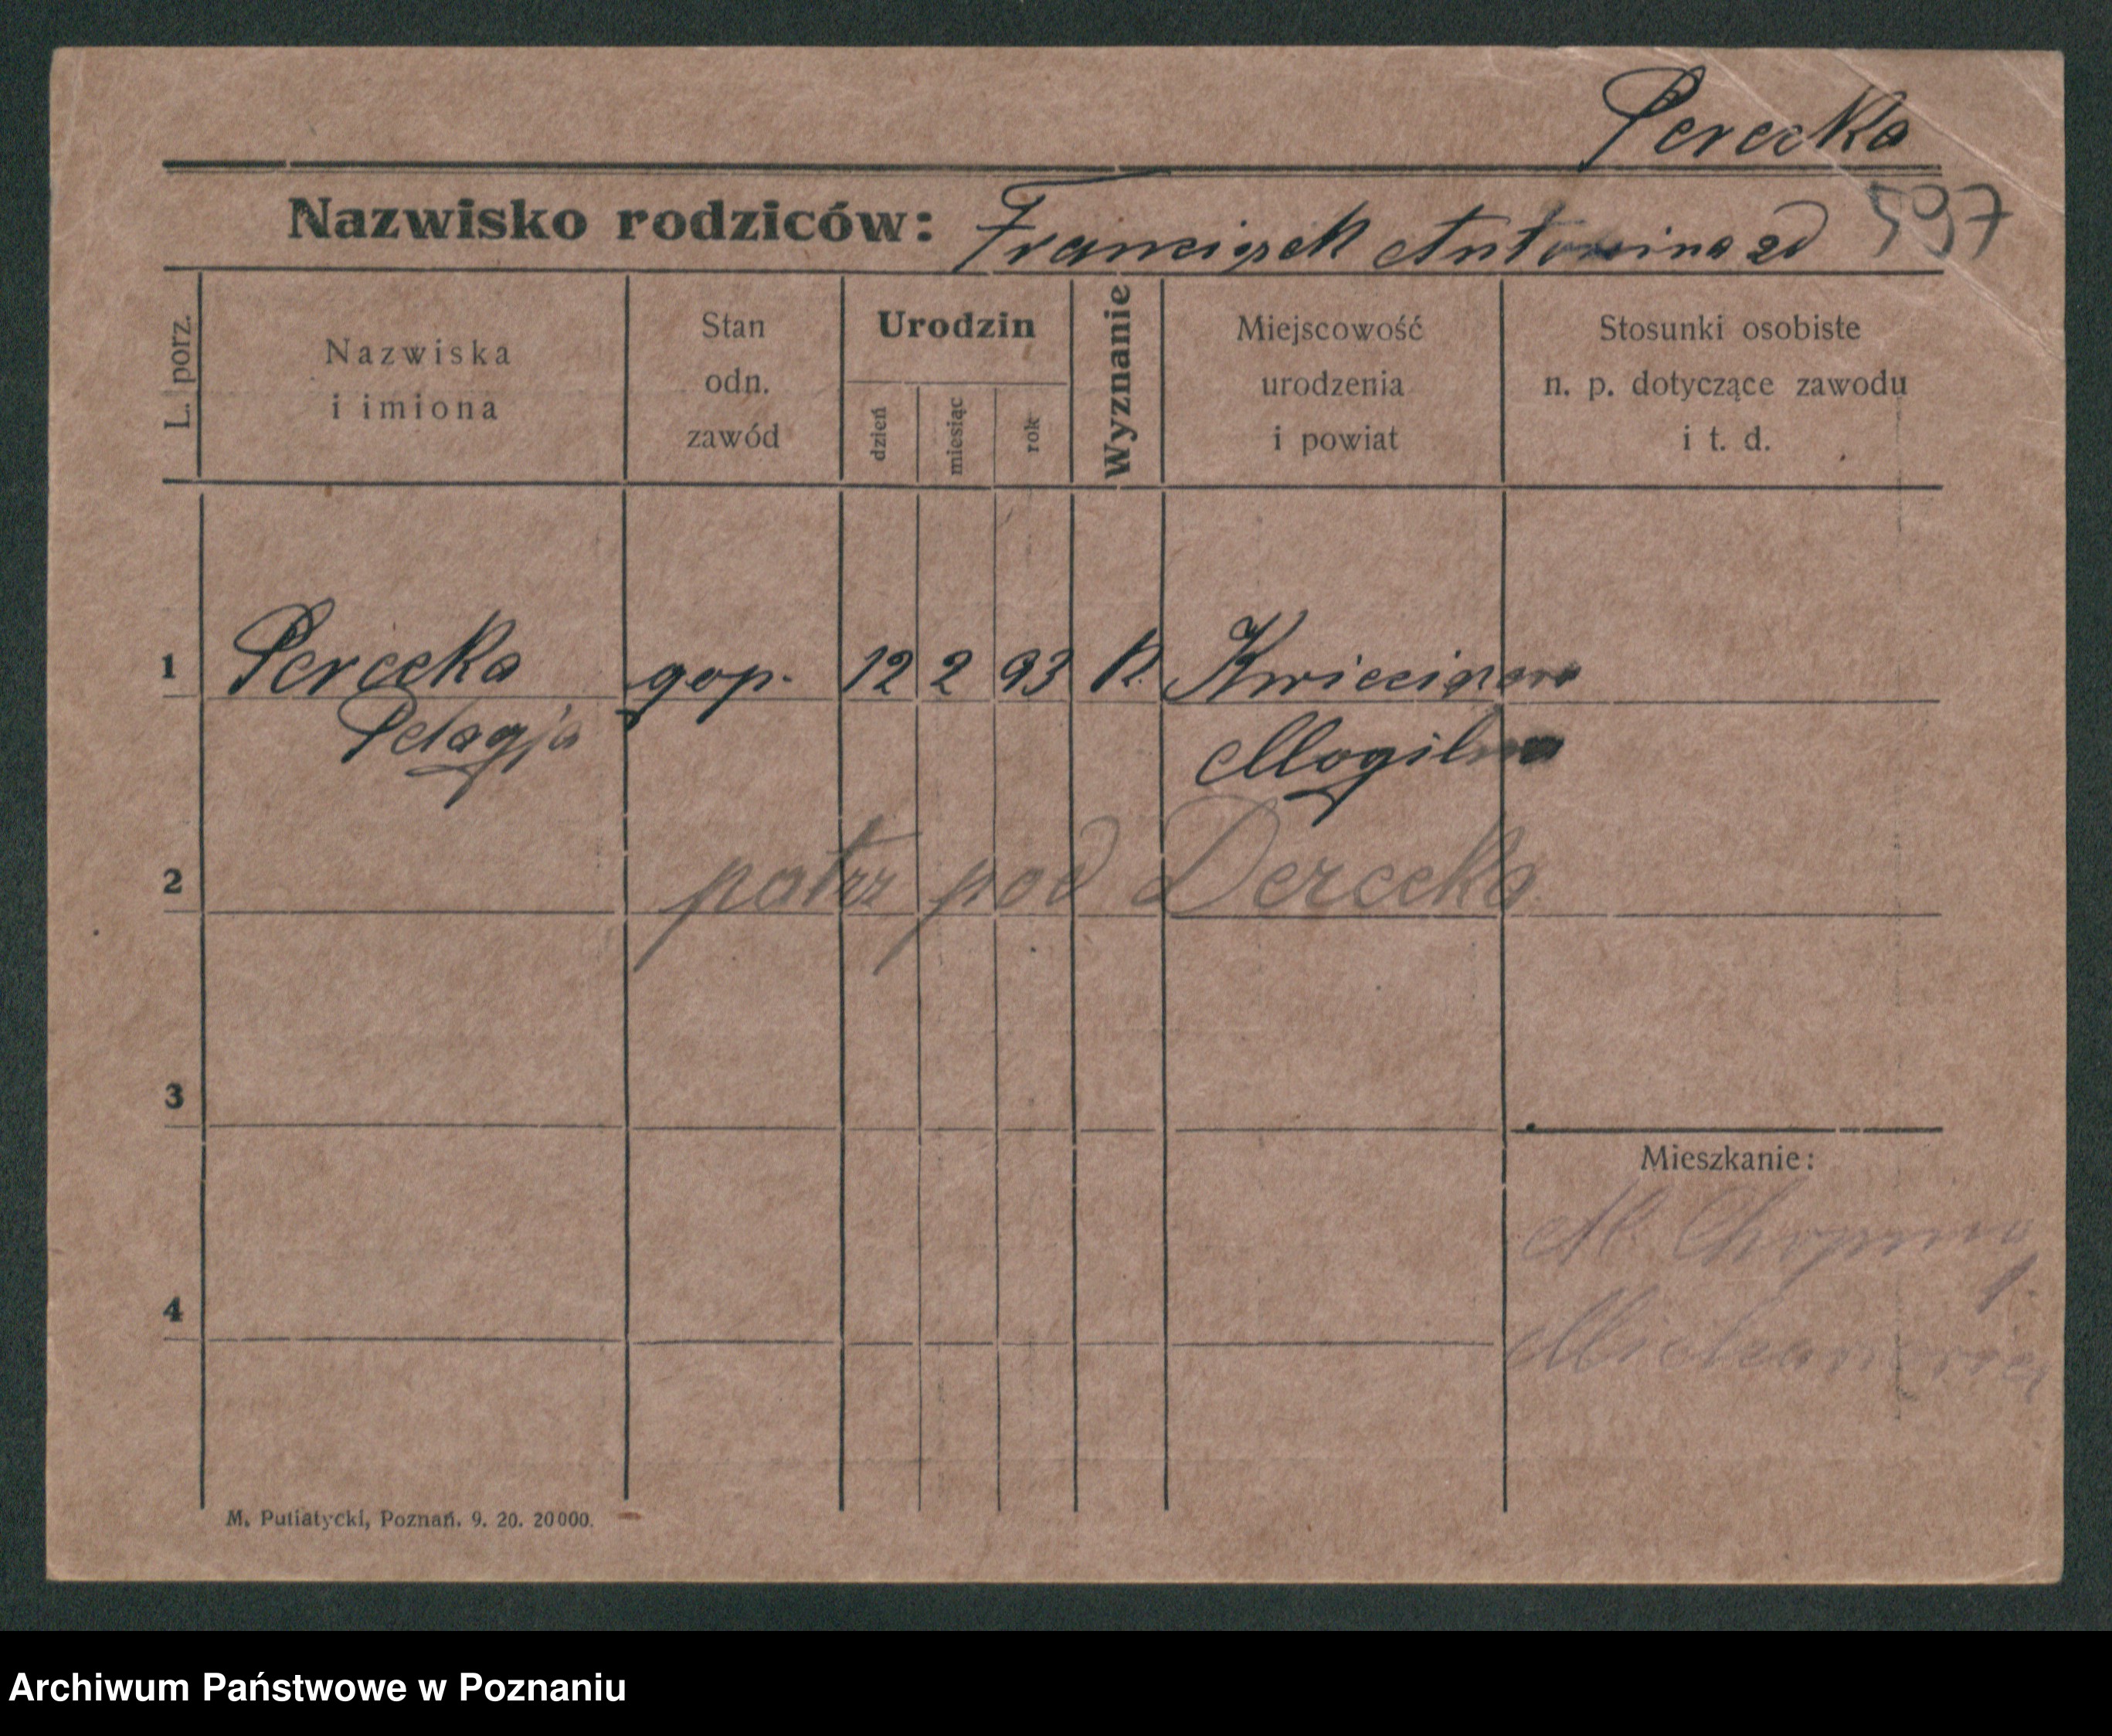 Perecka
Nazwisko rodziców: Franciszek Antonina zd 597
L. porz.
Nazwiska
i imiona
Stan
odn.
zawód
Urodzin
dzień
miesiąc
rok
Wyznanie
Miejscowość
urodzenia
i powiat
Stosunki osobiste
n. p. dotyczące zawodu
i t. d.
1 Perecka gosp. 12 2 93 K.
Pelagja Mogilno
2 patrz pod Derecka
3
Mieszkanie:
4
M. Putiatycki, Poznań. 9. 20. 20000.
Archiwum Państwowe w Poznaniu